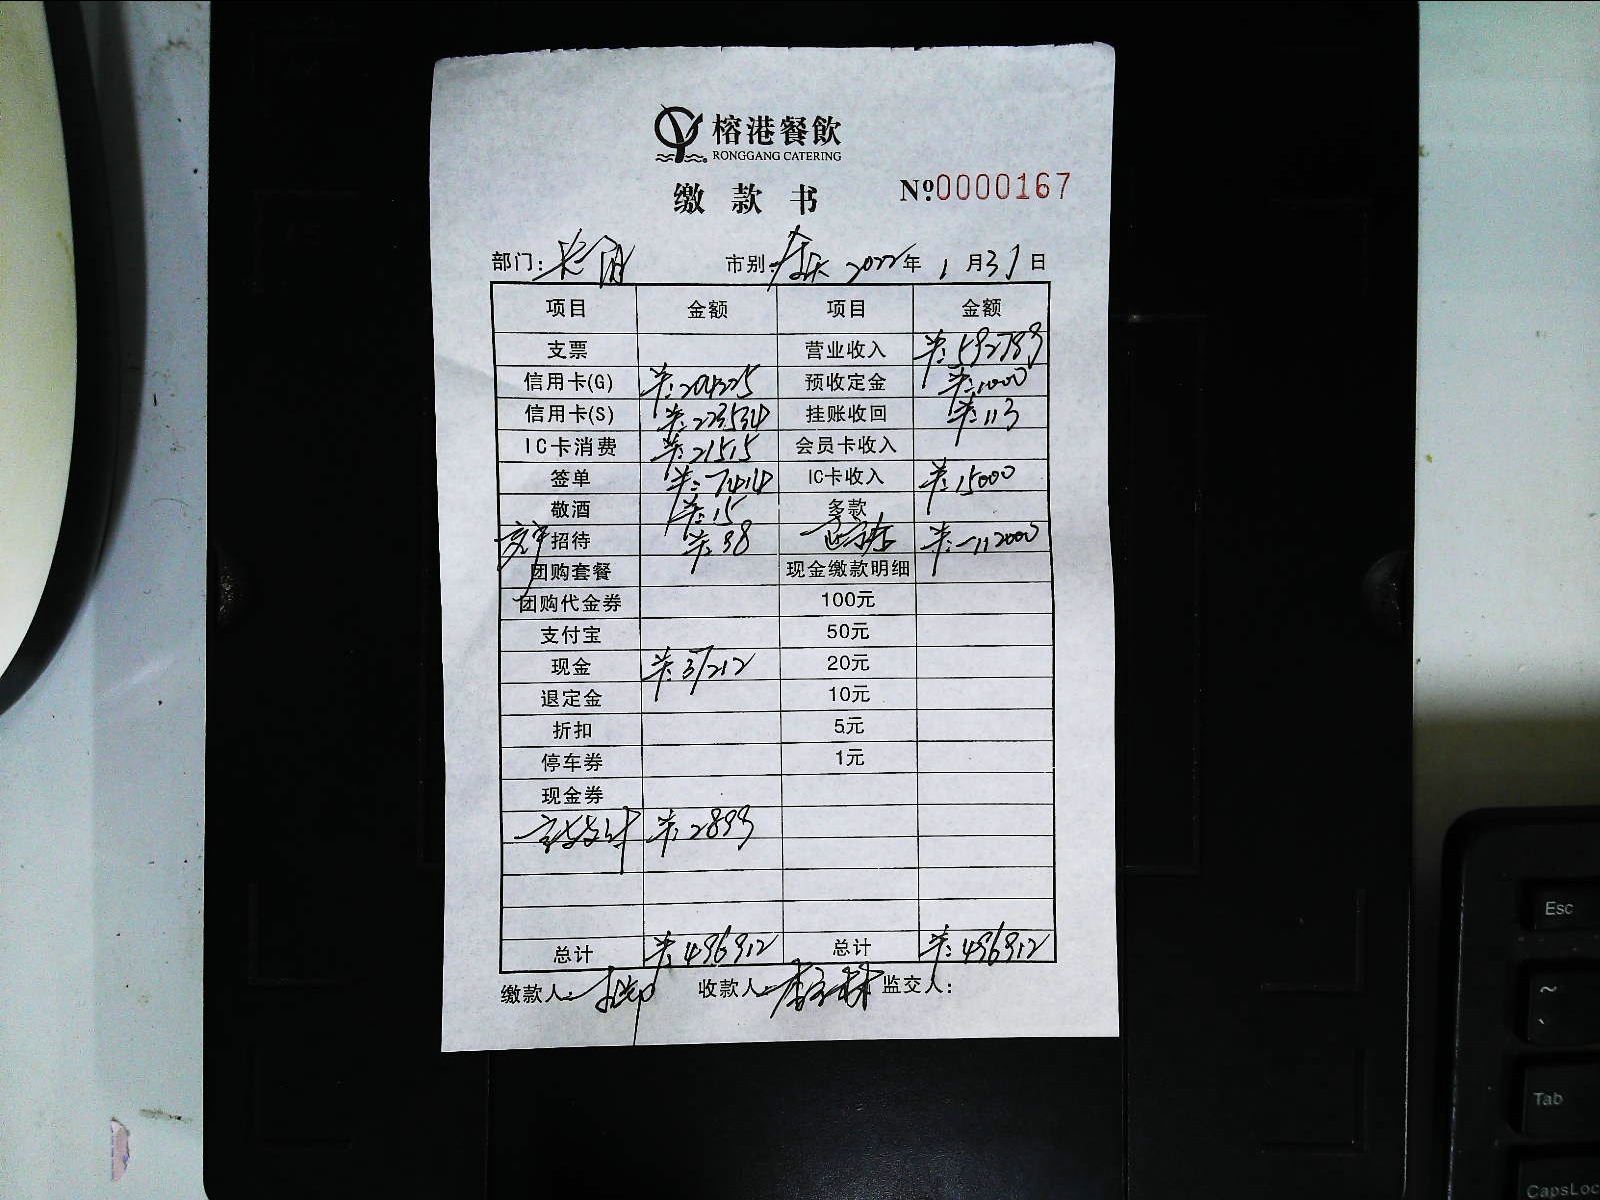 榕港餐飲
RONGGANG CATERING
缴款书 Nº:0000167
部门: 市别: 2022年 1月31日
项目 金额 项目 金额
支票 营业收入 ¥:592799
信用卡(G) ¥:204225 预收定金 ¥:1000
信用卡(S) ¥:223534 挂账收回 ¥:113
IC卡消费 ¥:21515 会员卡收入
签单 ¥:7414 IC卡收入 ¥:15000
敬酒 ¥:15 多款
招待 ¥:98 ¥:-112000
团购套餐 现金缴款明细
团购代金券 100元
支付宝 50元
现金 ¥:37212 20元
退定金 10元
折扣 5元
停车券 1元
现金券
¥:2899
总计 ¥:496912 总计 ¥:496912
缴款人: 收款人: 监交人:
Esc
~
`
Tab
CapsLoc